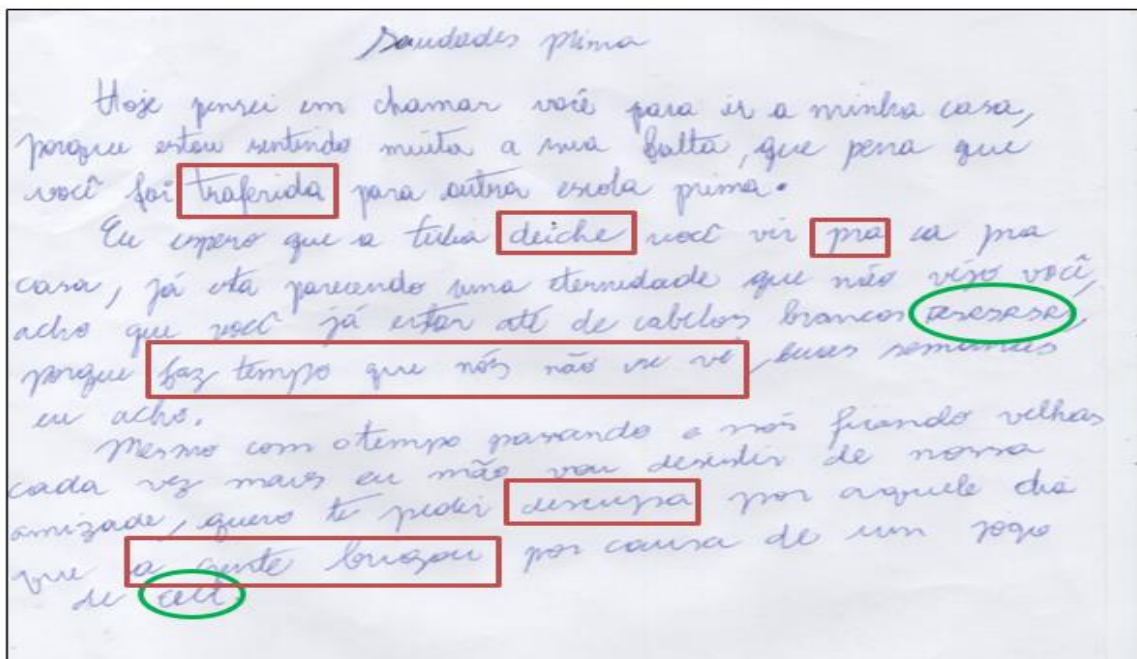 Saudades prima
Hoje pensei em chamar você para ir a minha casa,
porque estou sentindo muita a sua falta, que pena que
você foi traferida para outra escola prima.
Eu espero que a tithia deiche você vir pra ca pra
casa, já eta parecendo uma eternidade que não vejo você,
acho que você já estar até de cabelos brancos
porque faz tempo que nós não se vê, semanas
eu acho.
Mesmo com otempo passando e nós ficando velhas
cada vez mais eu não vou desistir de nossa
amizade, quero te pedir descupa por aquele dia
que a gente brigou por causa de um jogo
de cell